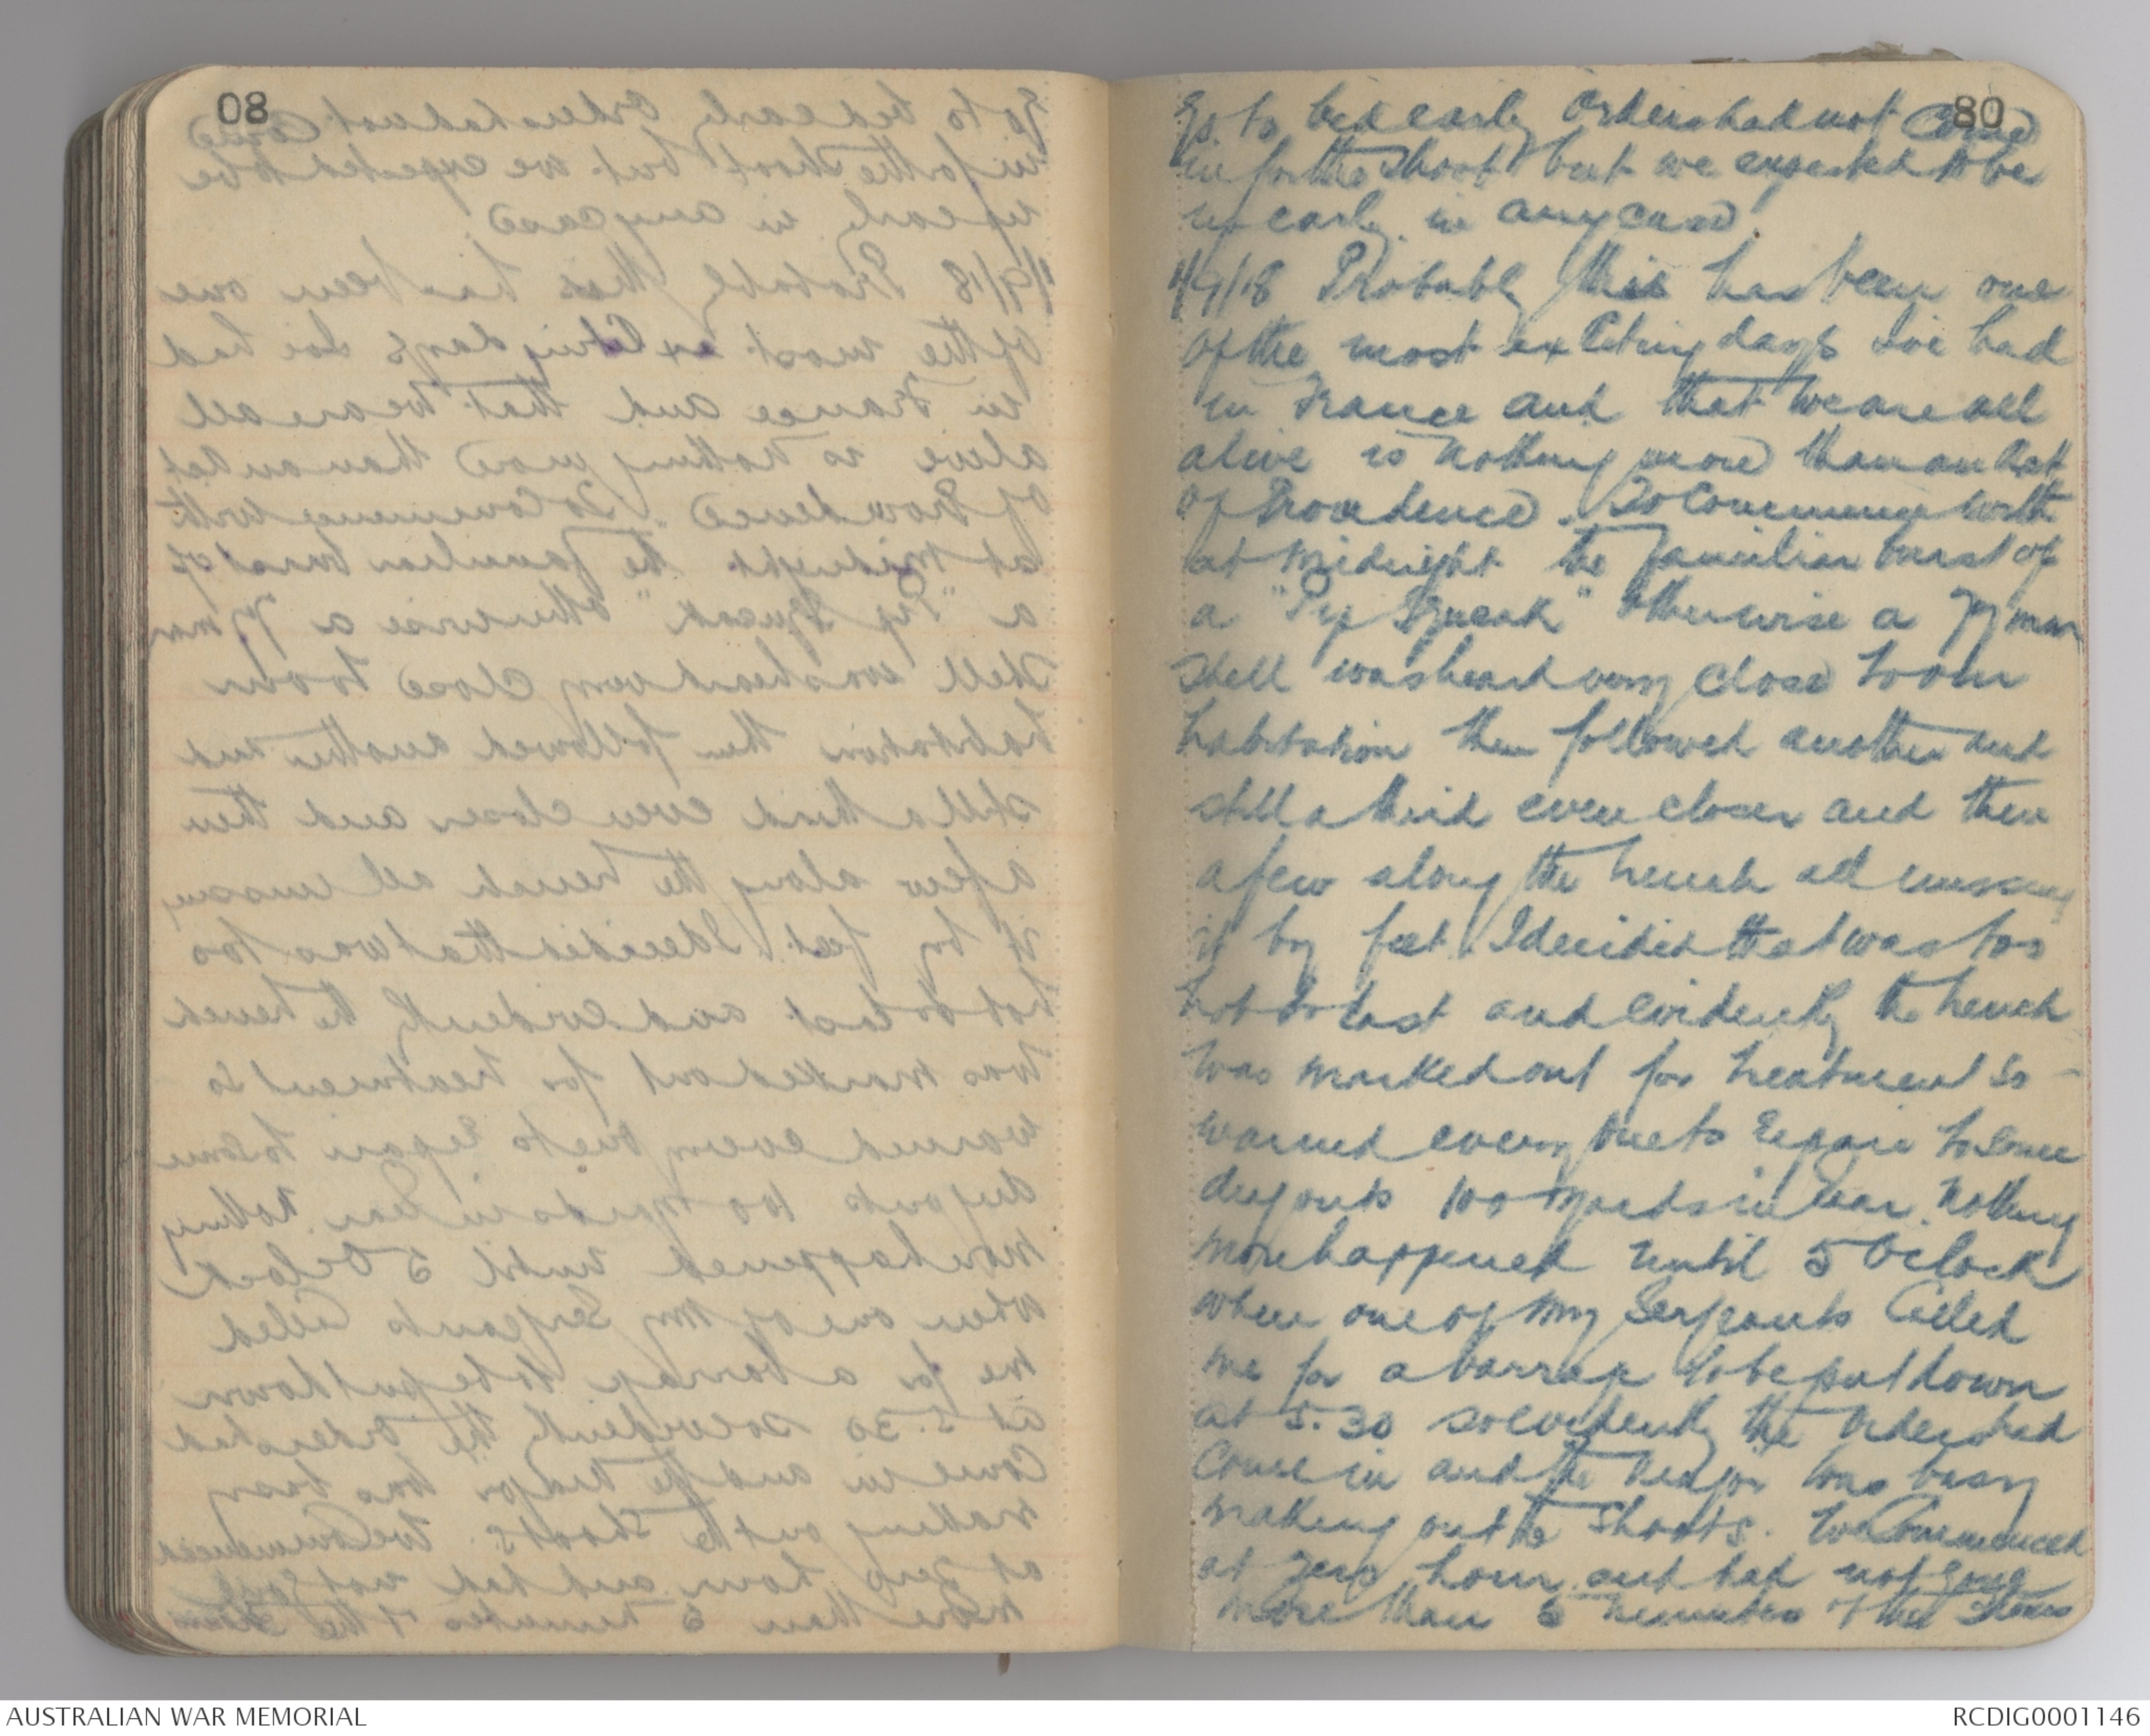 80
go to bed early orders had not come
in for the shoot but we expected to be
up early in any case
1/9/18 Probably this has been one
of the most exciting days I've had
in France and that we are all
alive is nothing more than an act
of Providence. To commence with
at midnight the familiar burst of
a "Pip Squeak" otherwise a 77 mm
shell was heard very close to our
habitation then followed another and
still a third even closer and then
a few along the trench all missing
it by feet. I decided that was too
hot to last and evidently the trench
was marked out for treatment so
warned every one to repair to some
dugouts 100 yards in rear. Nothing
more happened until 5 Oclock
when one of my Sergeants called
me for a barrage to be put down
at 5.30 so evidently the orders had
come in and the Major was busy
making out the shoots. We commenced
at zero hour and had not gone
more than 5 minutes &
AUSTRALIAN WAR MEMORIAL
RCDIG0001146